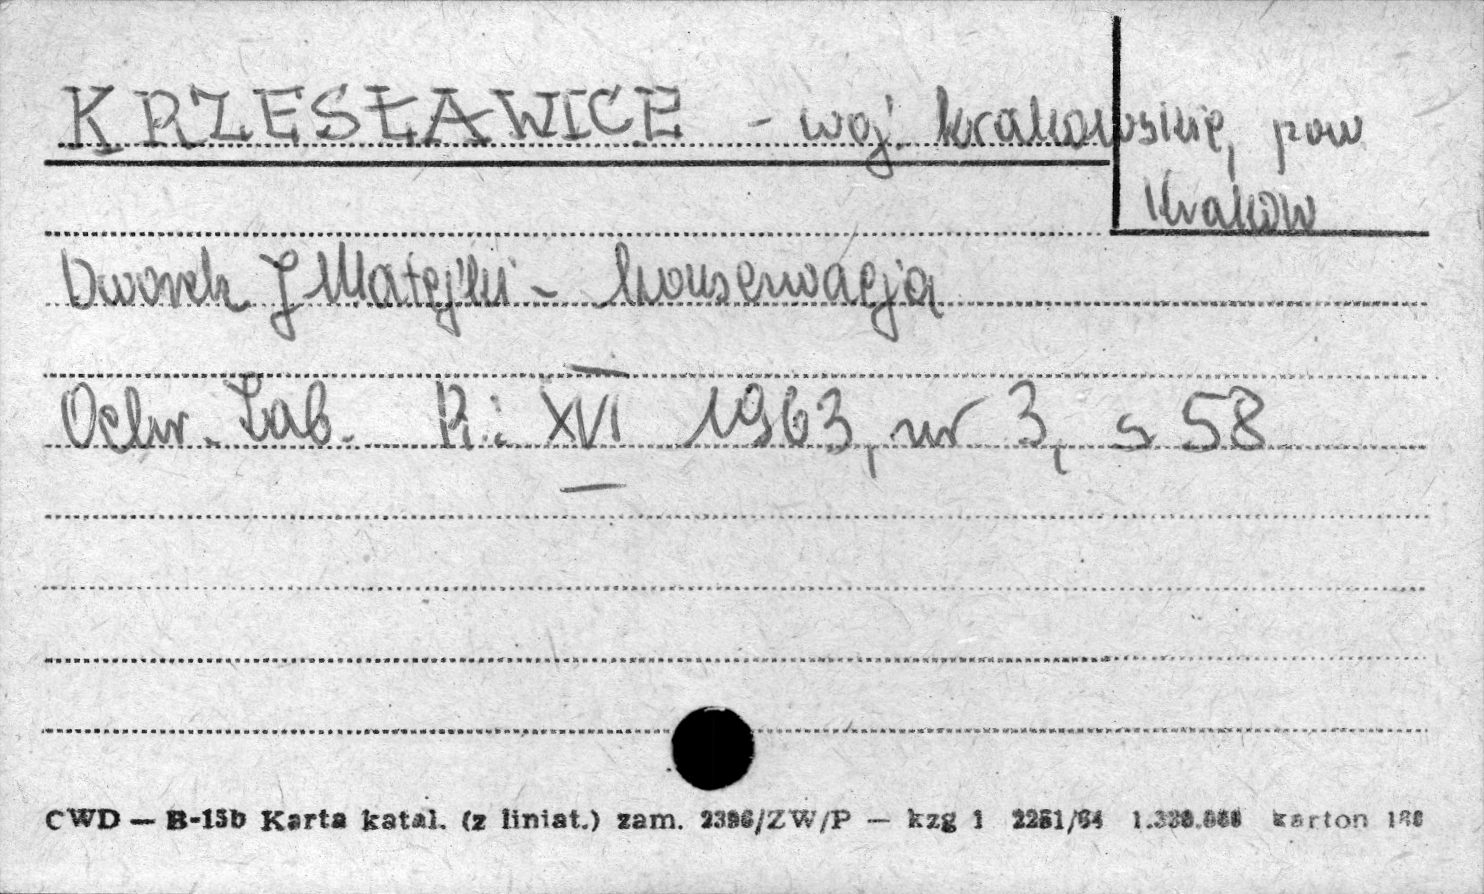 KRZESŁAWICE - woj. krakowskie, pow
Kraków
Dworek J Matejki - konserwacja
Ochr. Zab. R.: XVI 1963, nr 3, s 58
CWD — B-15b Karta katal. (z liniat.) zam. 2396/ZW/P — kzg 1 2251/64 karton